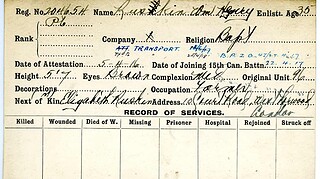 Reg. No. 204654 Name Ruskin Wm Henry Enlist. Age 35
Pte
Rank Company X Religion Bapt
AFF. TRANSPORT.
Date of Attestation 5-4-16 Date of Joining 15th Can. Battn. 22.4.17
Height 5'7 Eyes Brown Complexion Med Original Unit 92
Decorations Occupation Farmer
Next of Kin Elizabeth Ruskin Address 10 Court Road, West Norwood
London
RECORD OF SERVICES.
Killed Wounded Died of W. Missing Prisoner Hospital Rejoined Struck off